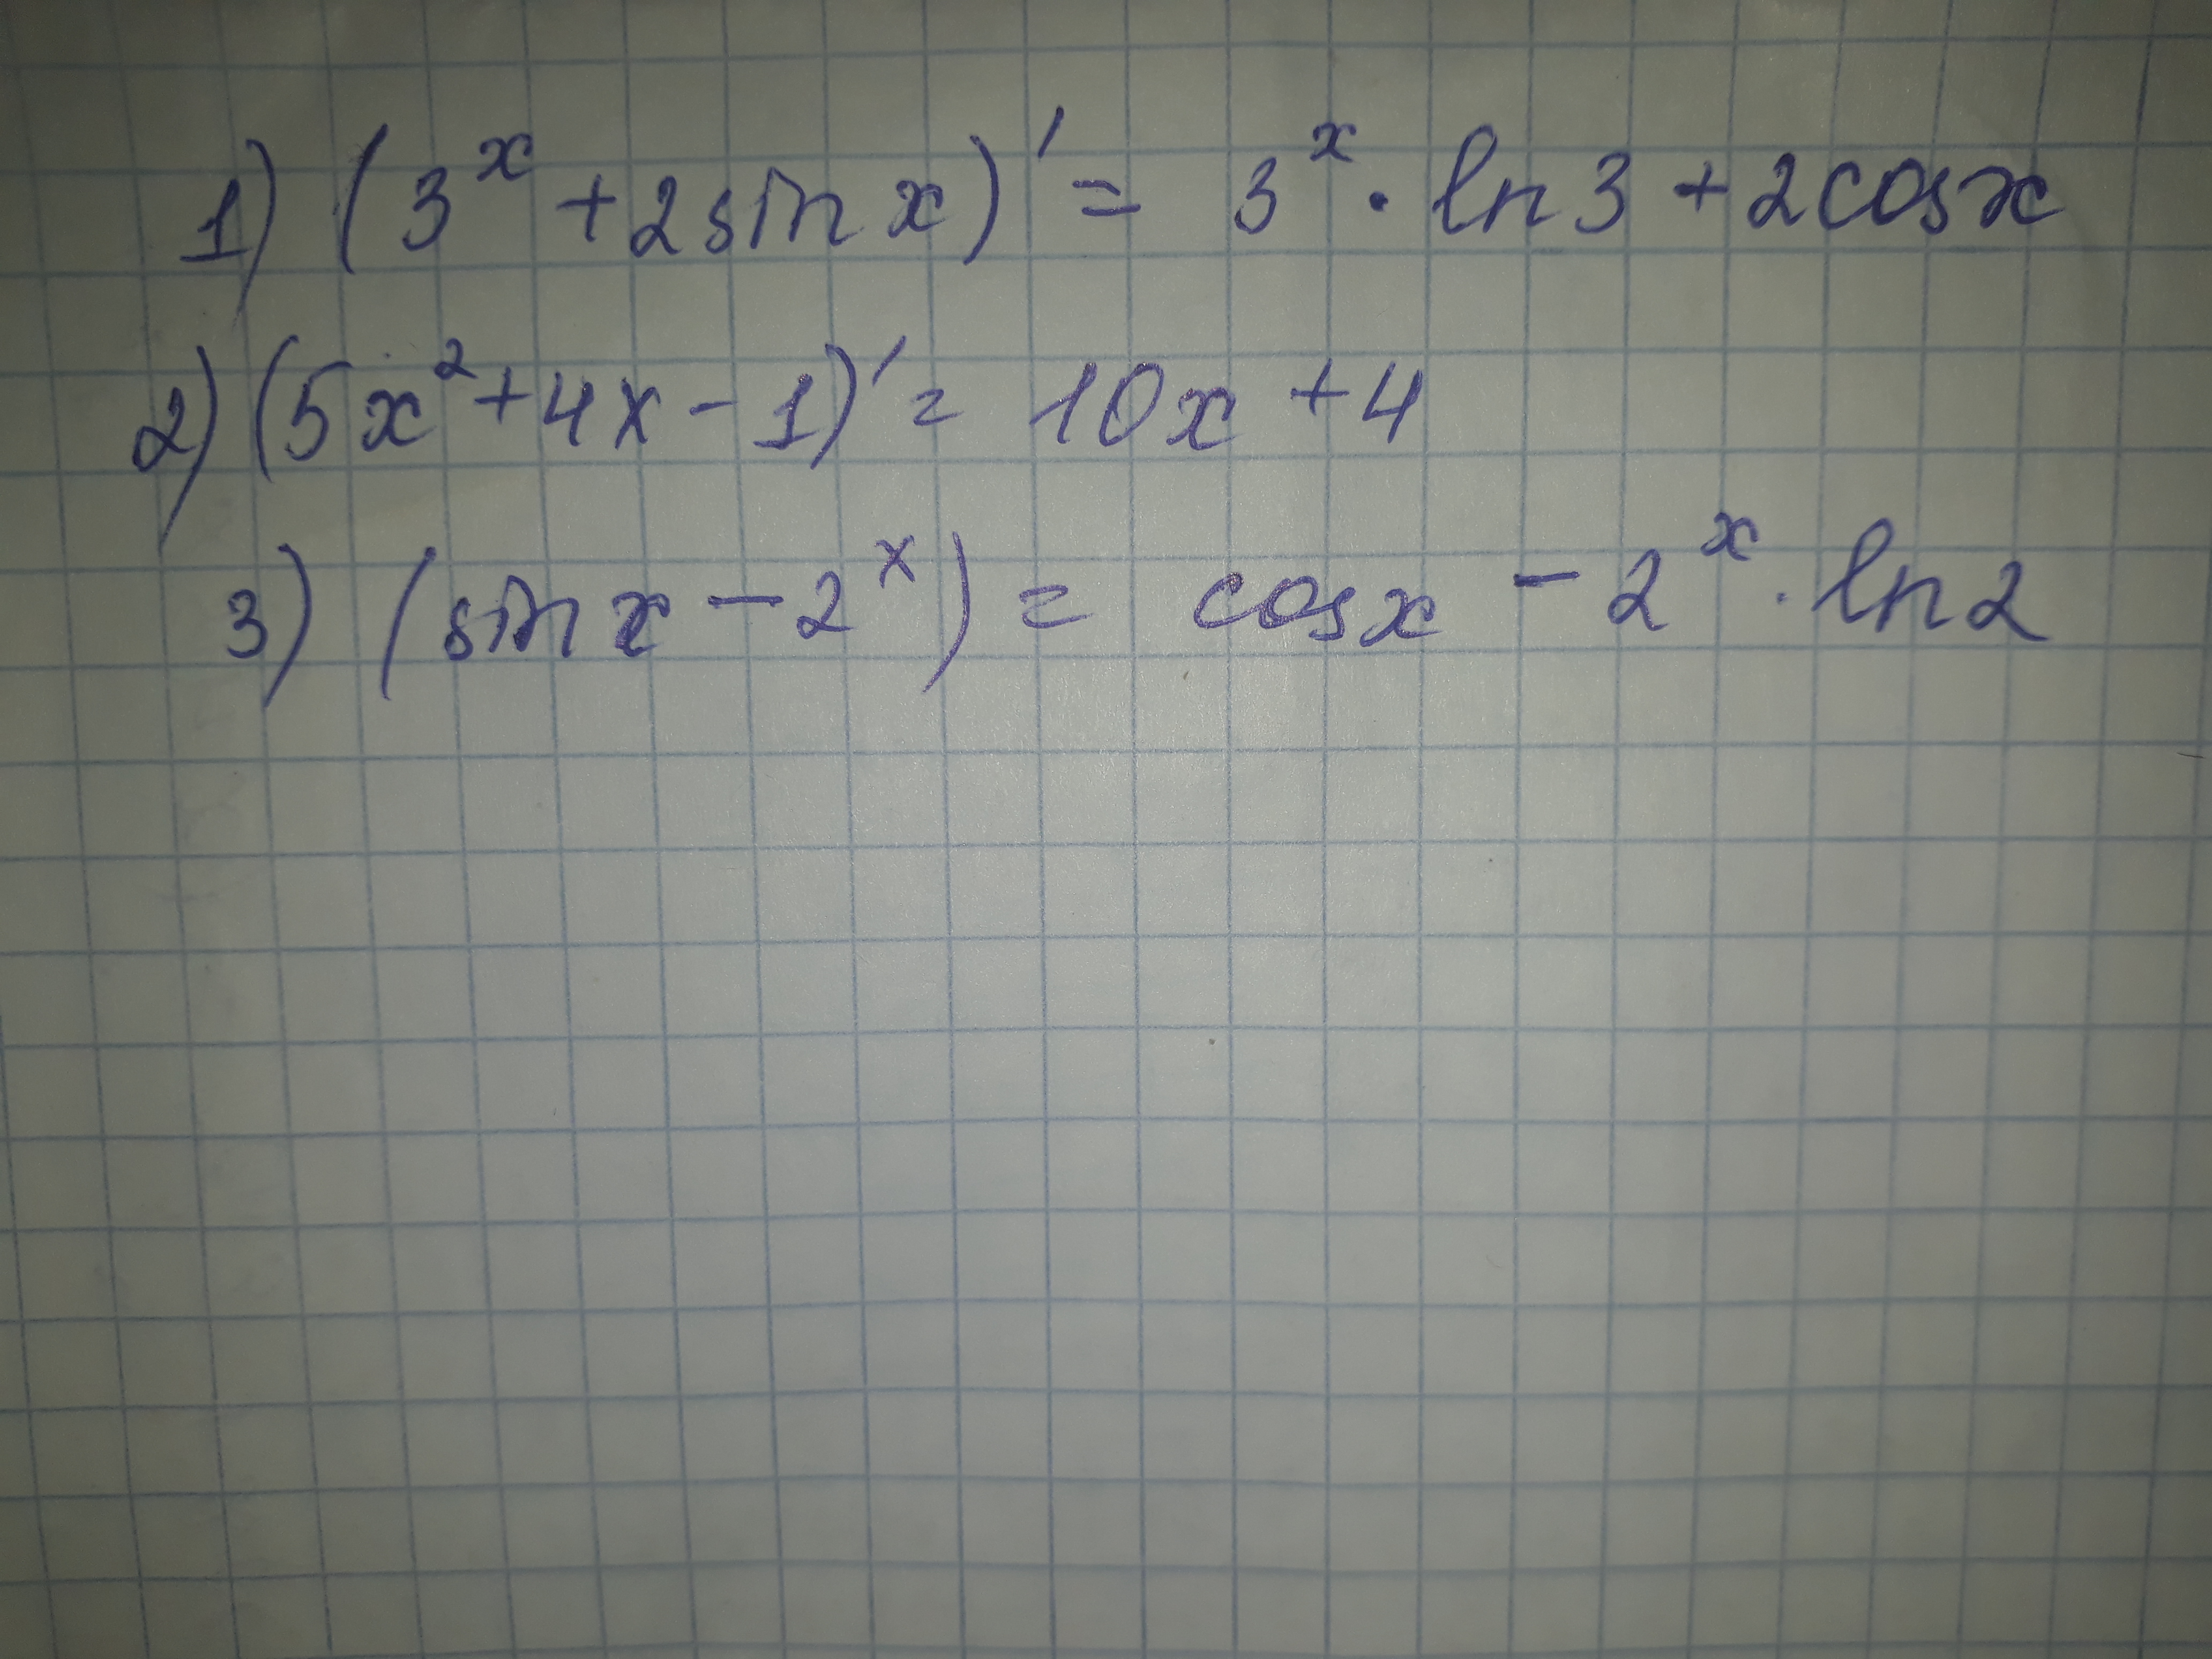 1) (3^x + 2 sin x)' = 3^x · ln 3 + 2 cos x
2) (5x² + 4x - 1)' = 10x + 4
3) (sin x - 2^x) = cos x - 2^x · ln 2